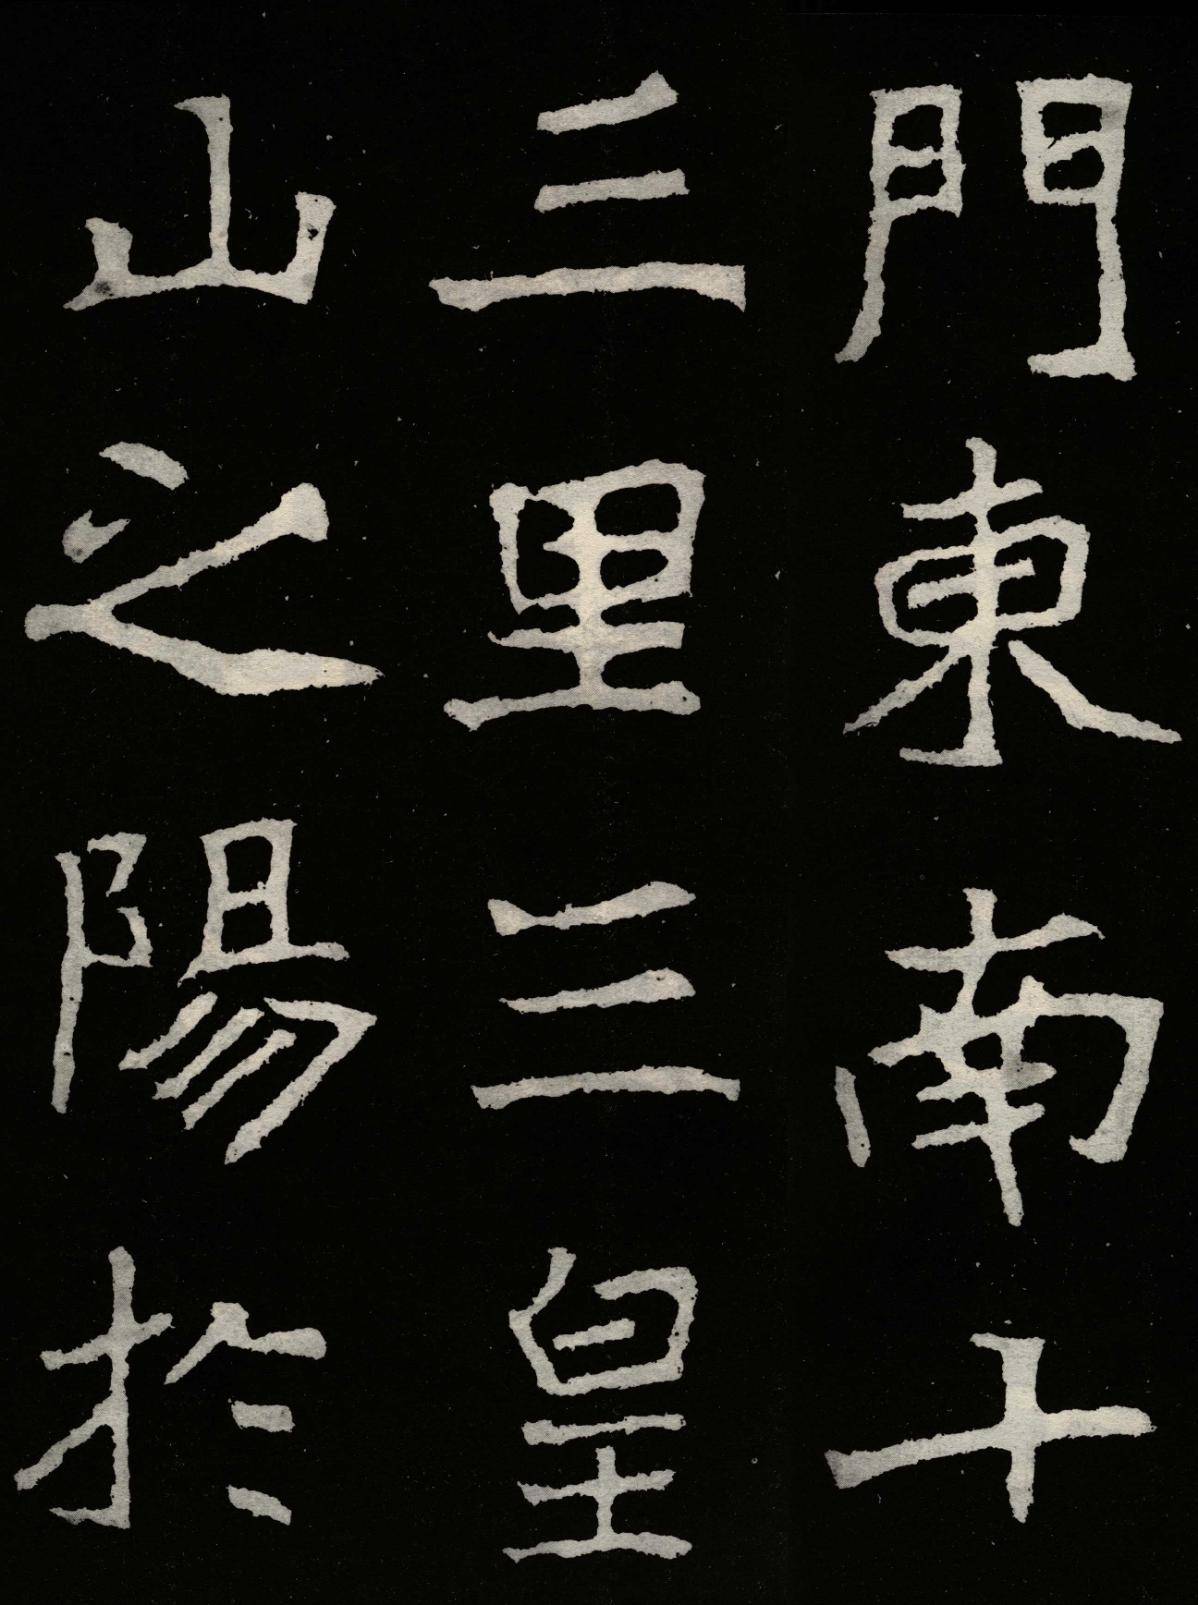 門東南十
三里三皇
山之陽於